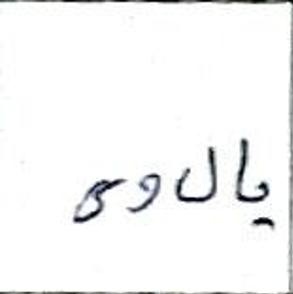 یالوی